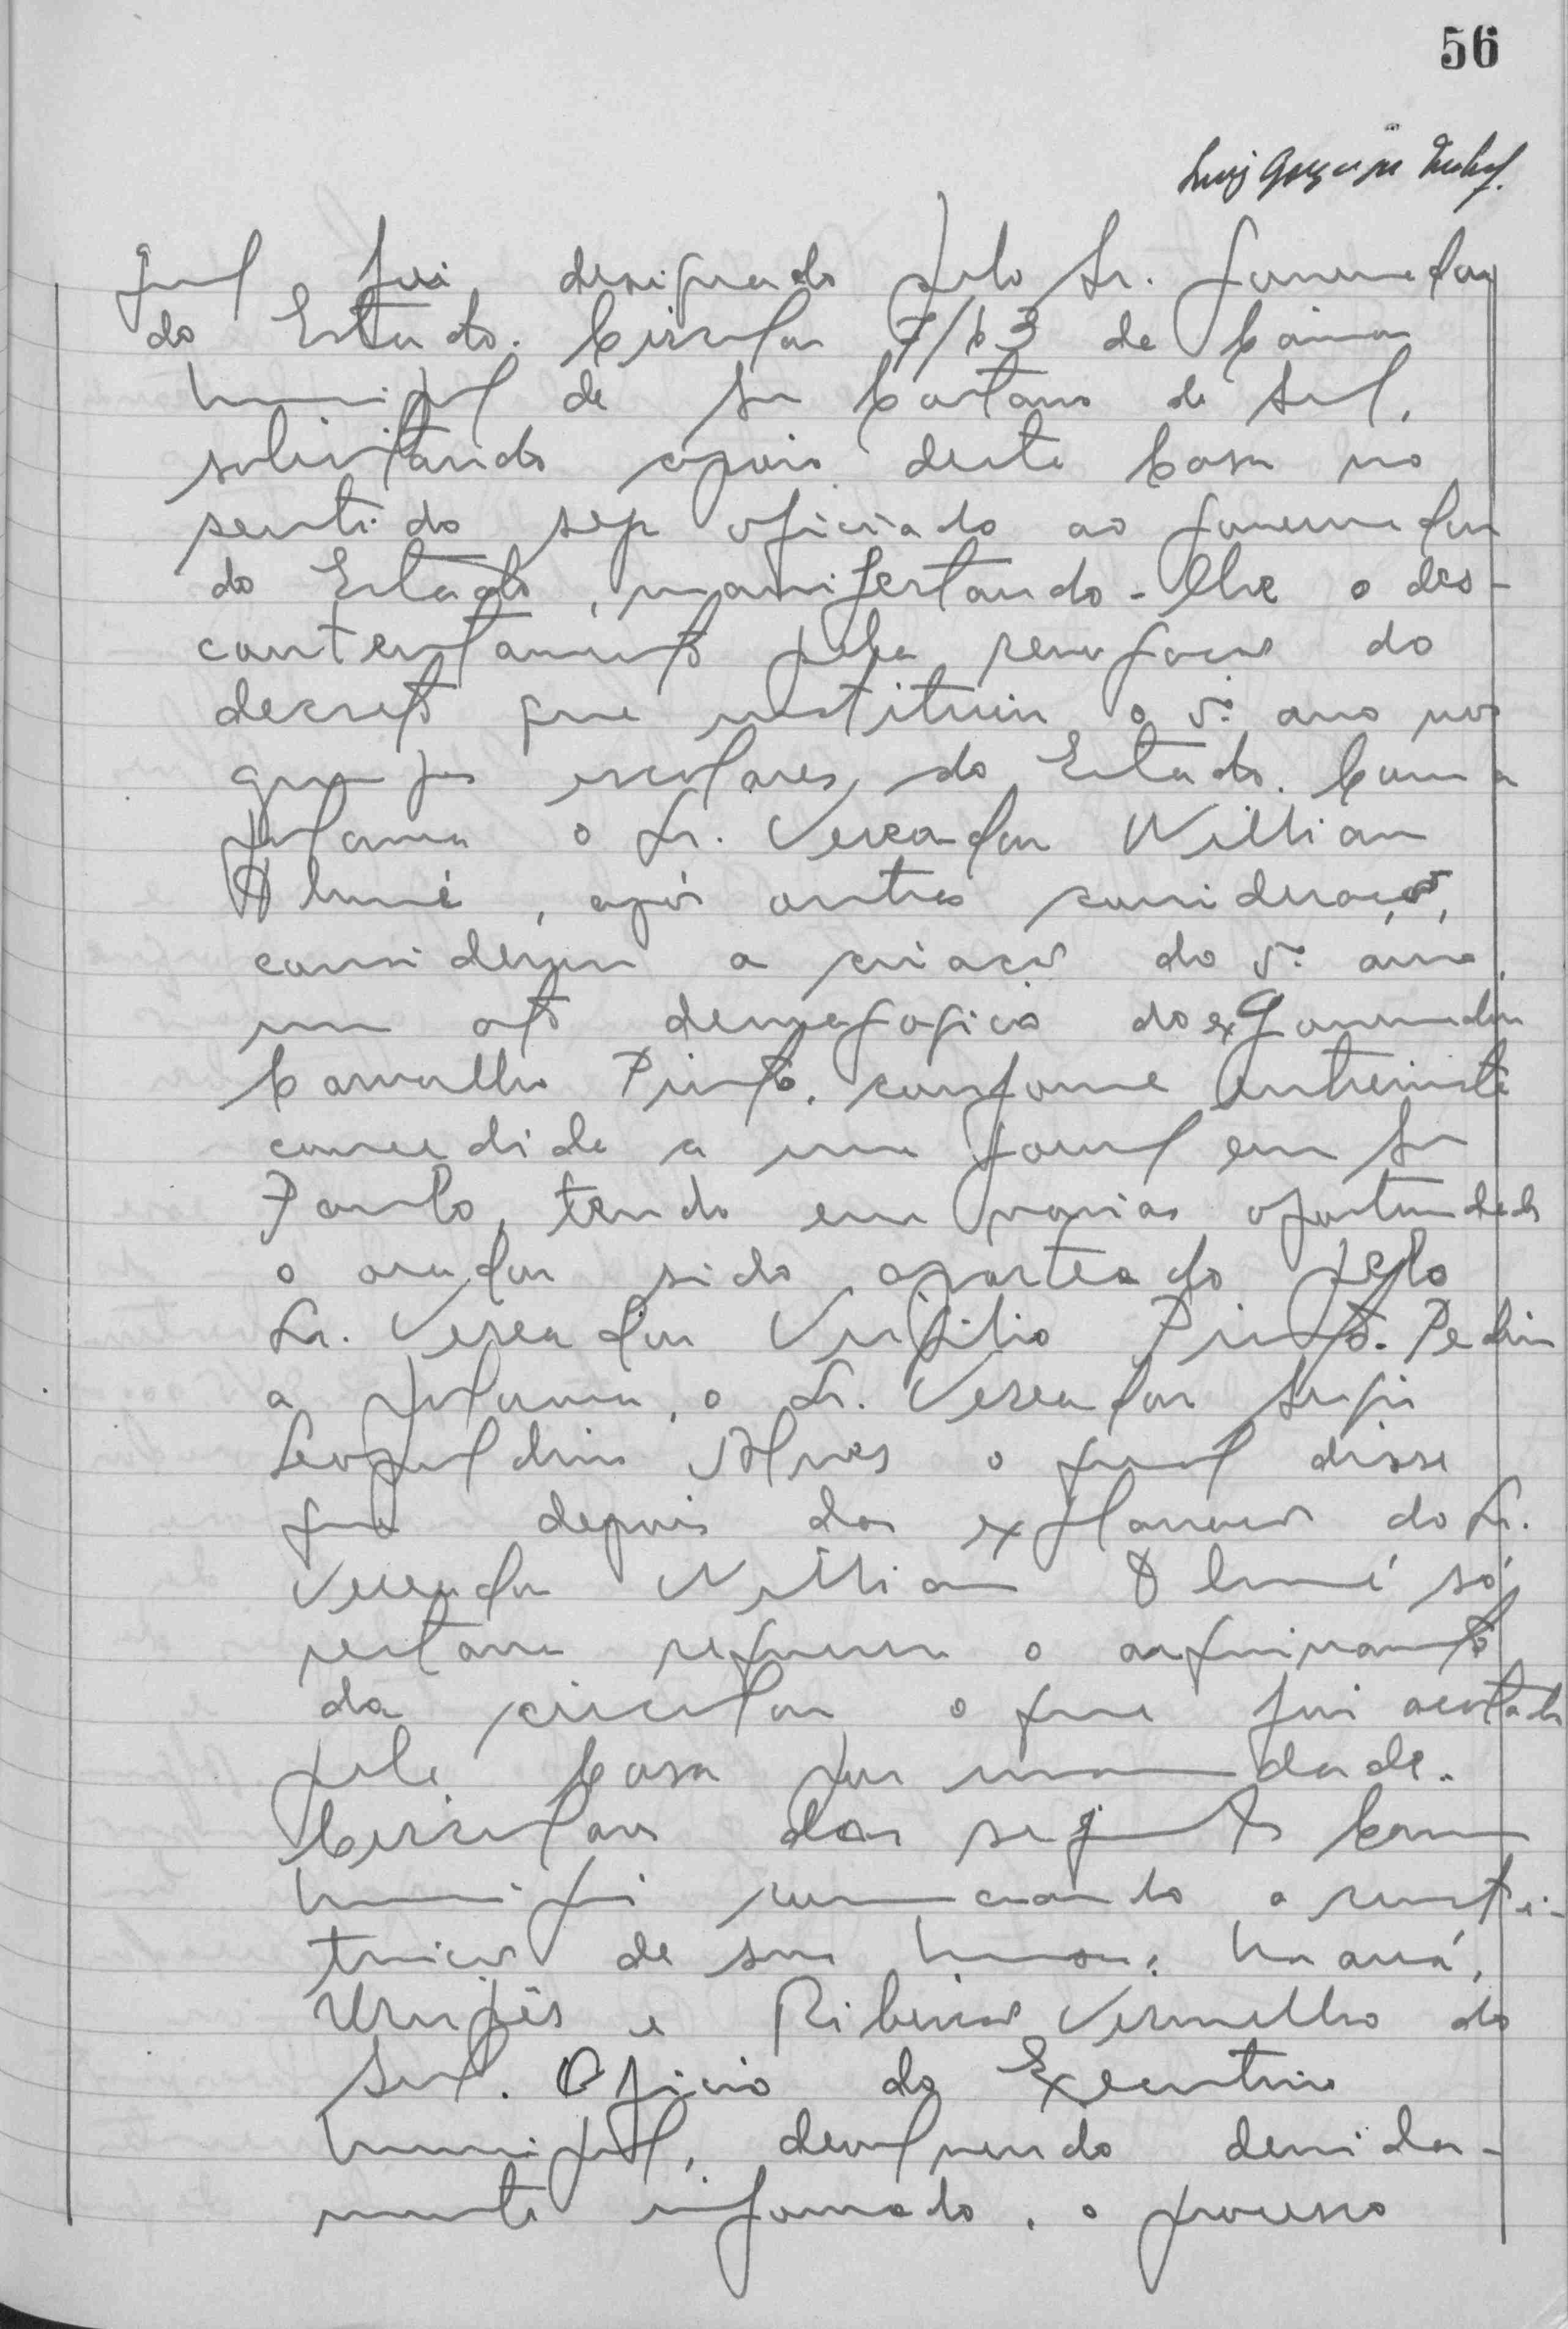 56
Luiz Gonzaga
qual foi designado pelo Sr. Governador
do Estado. Circular 7/63 de Câmara
Municipal de São Caetano do Sul,
solicitando apoio desta Casa no
sentido seja oficiado ao Governador
do Estado, manifestando-lhe o des-
contentamento pela revogação do
decreto que instituiu o 5º ano nos
grupos escolares do Estado. Com a
palavra o Sr. Vereador Willian
, após outras considerações,
considerou a criação do 5º ano,
um ato demagogico do ex Governador
Carvalho Pinto, conforme entrevista
concedida a um jornal em São
Paulo, tendo em varias oportunidades
o orador sido aparteado pelo
Sr. Vereador Virgilio Pinto. Pediu
a palavra, o Sr. Vereador Sergio
Leopoldino Alves o qual disse
que depois das explanações do Sr.
Vereador Willian só
restava requerer o arquivamento
da circular o que foi acatado
pela Casa por unanimidade.
Circulares das seguintes Camaras
Municipais comunicando a consti-
tuição de sua Mesa: Mauá,
Urupês e Ribeirão Vermelho do
Sul. Oficio do Executivo
Municipal, devolvendo devida-
mente informado, o processo